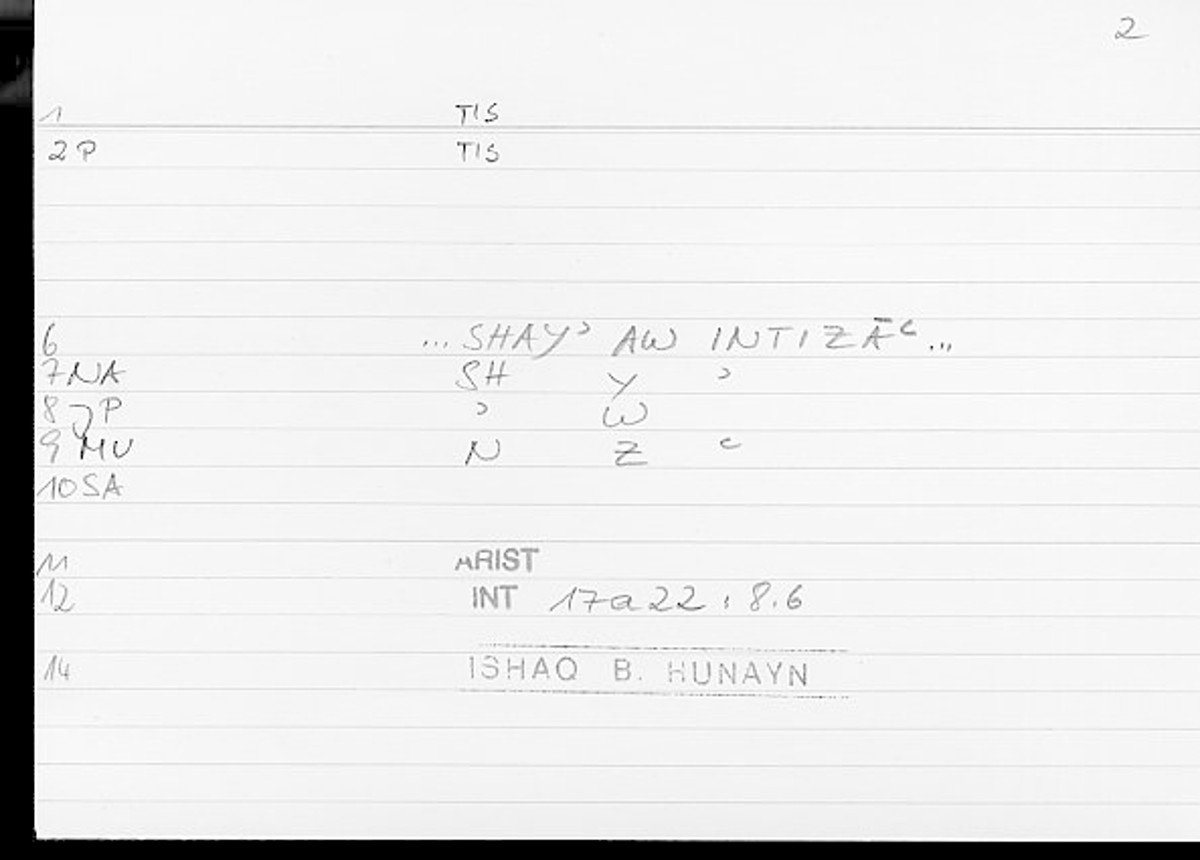 2
1 TIS
2 P TIS
6 ... SHAYʾ AW INTIZĀʿ ...
7 NA SH Y ʾ
8 JP ʾ W
9 MU N Z ʿ
10 SA
11 ARIST
12 INT 17a22 : 8.6
14 ISHAQ B. HUNAYN